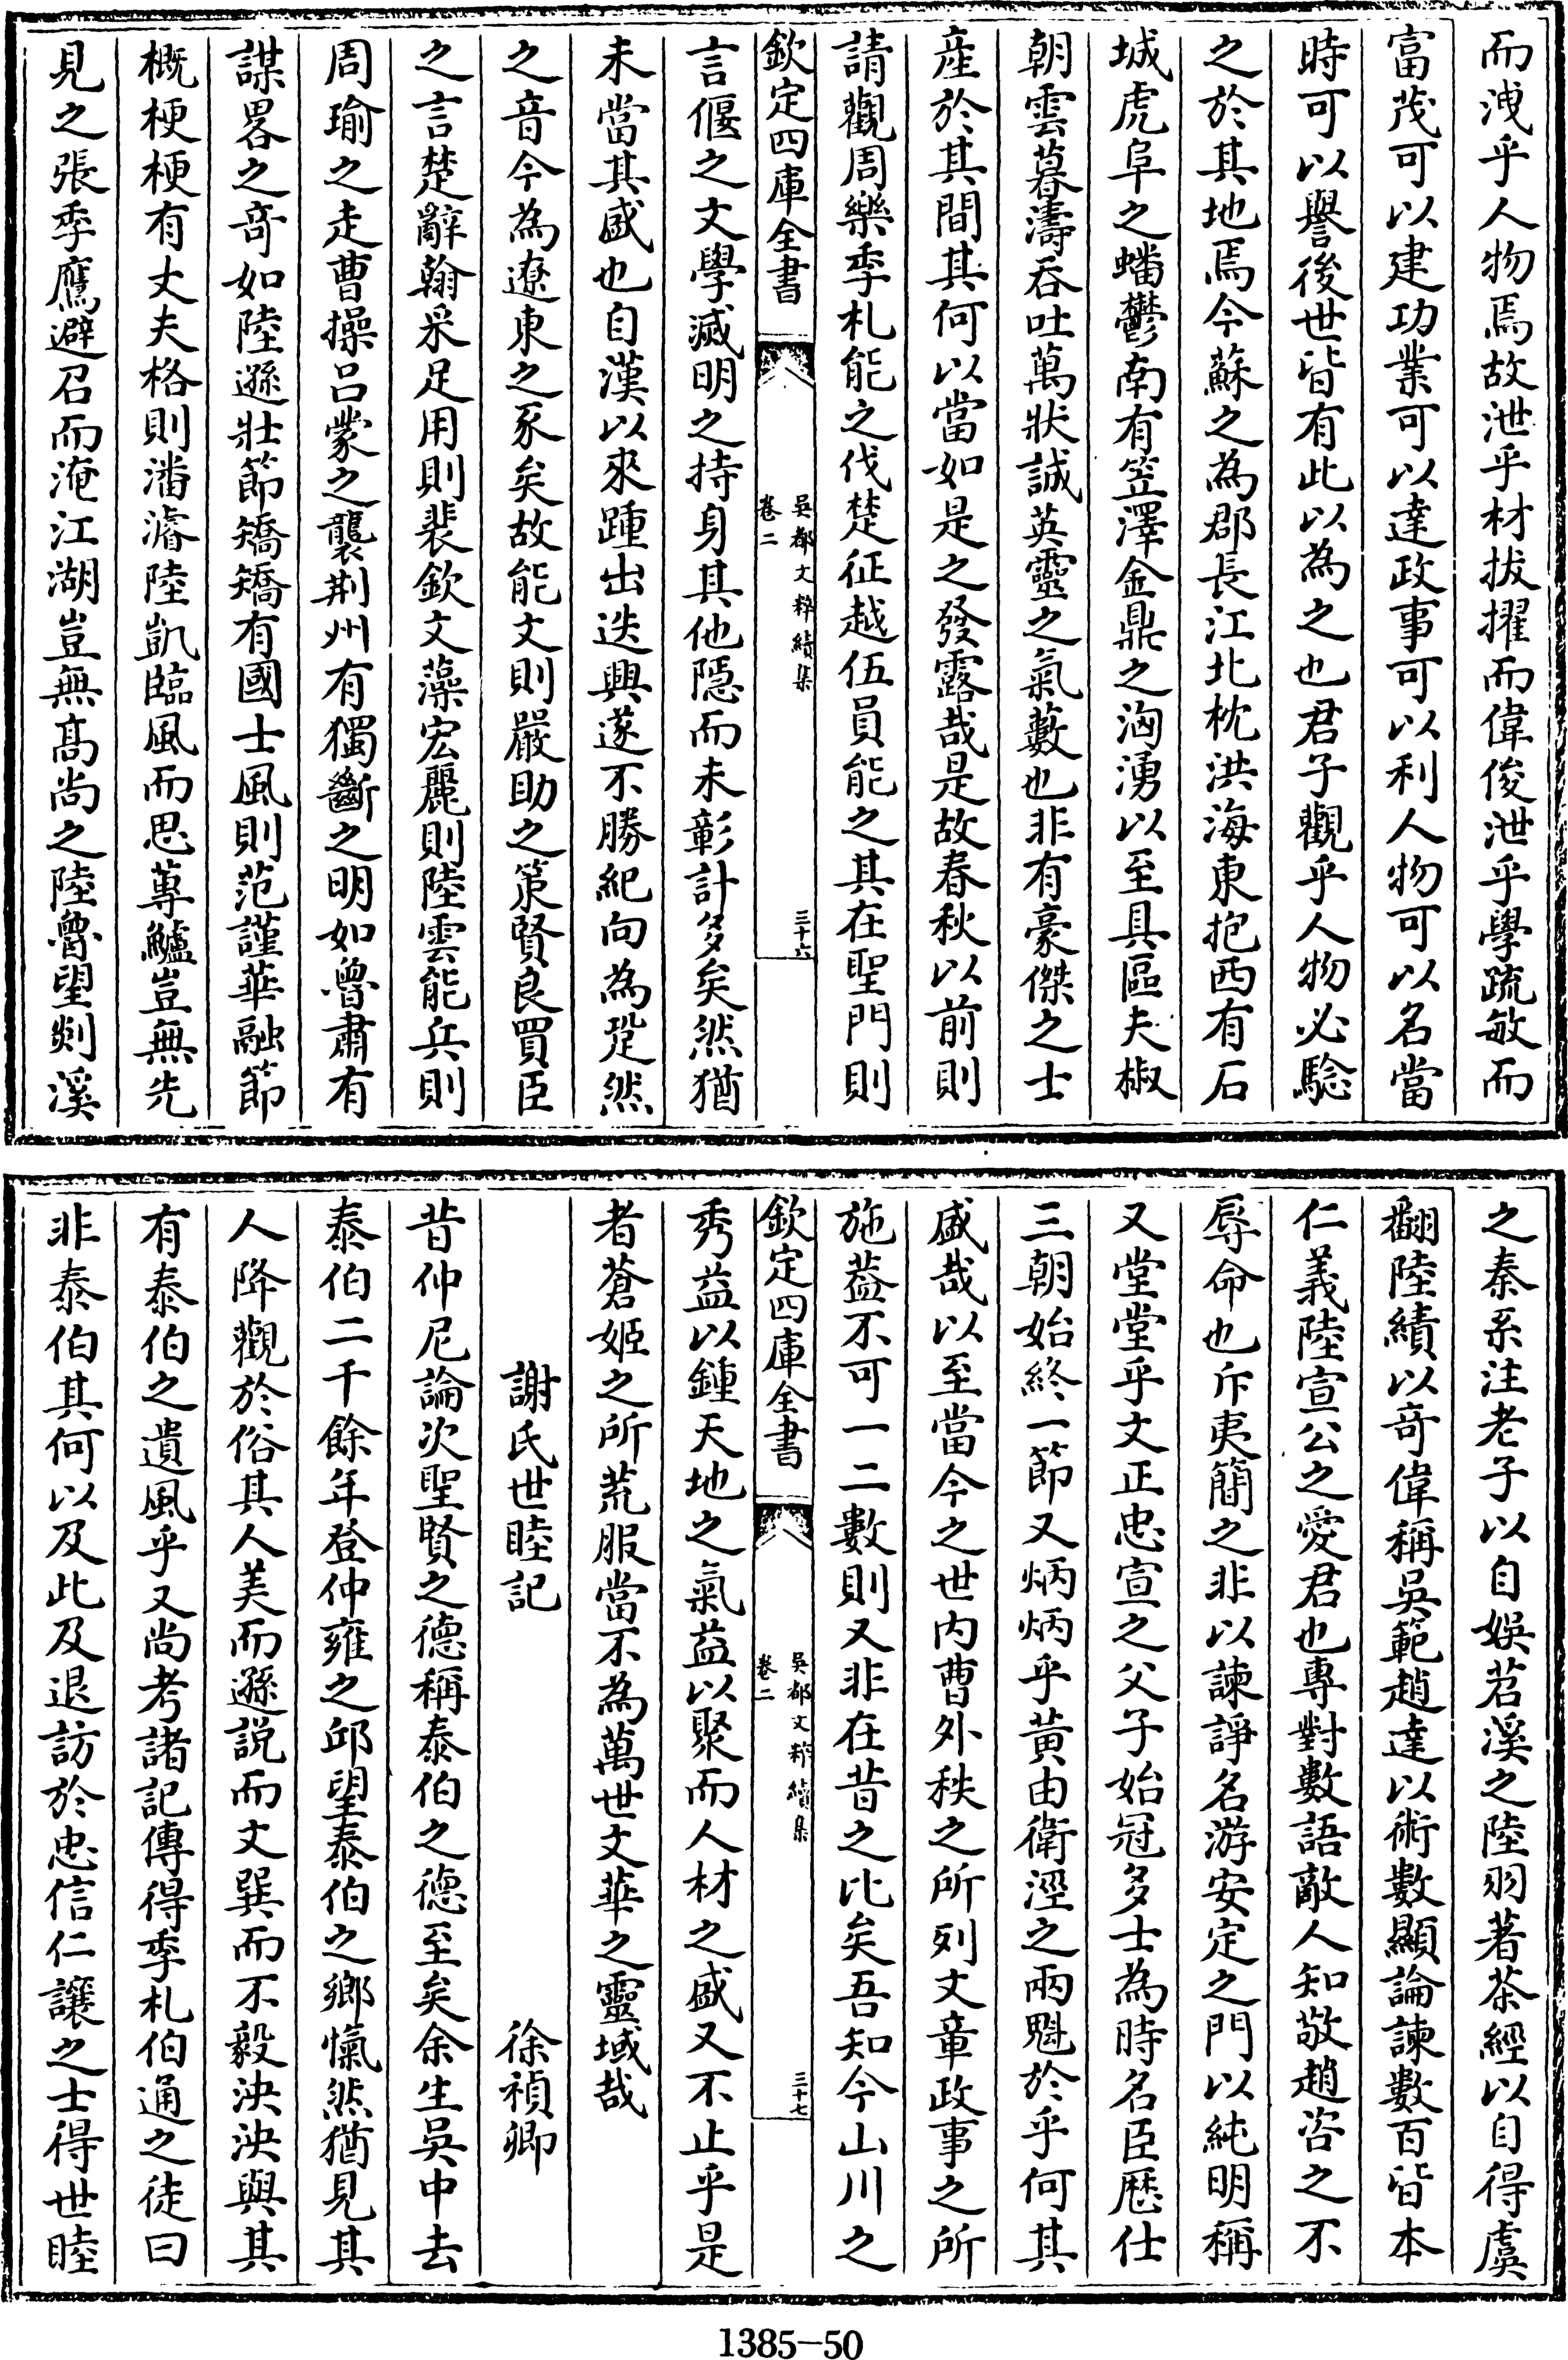 而洩乎人物焉故泄乎材拔擢而偉俊泄乎學疏敏而
富茂可以建功業可以達政事可以利人物可以名當
時可以譽後世皆有此以為之也君子觀乎人物必騐
之於其地焉今蘇之為郡長江北枕洪海東抱西有石
城虎阜之蟠鬱南有笠澤金鼎之洶湧以至具區夫椒
朝雲暮濤吞吐萬狀誠英靈之氣藪也非有豪傑之士
産於其間其何以當如是之發露哉是故春秋以前則
請觀周樂季札能之伐楚征越伍員能之其在聖門則
欽定四庫全書
吳都文粹續集
卷二
三十六
言偃之文學滅明之持身其他隱而未彰計多矣然猶
未當其盛也自漢以來踵出迭興遂不勝紀向為跫然
之音今為遼東之豕矣故能文則嚴助之策賢良買臣
之言楚辭翰采足用則裴欽文藻宏麗則陸雲能兵則
周瑜之走曹操吕蒙之襲荆州有獨斷之明如魯肅有
謀畧之竒如陸遜壯節矯矯有國士風則范謹華融節
概梗梗有丈夫格則潘濬陸凱臨風而思蓴鱸豈無先
見之張季鷹避召而淹江湖豈無髙尚之陸魯望剡溪
之秦系注老子以自娯苕溪之陸羽著茶經以自得虞
翻陸績以竒偉稱吳範趙達以術數顯論諫數百皆本
仁義陸宣公之愛君也專對數語敵人知敬趙咨之不
辱命也斥夷簡之非以諫諍名游安定之門以純明稱
又堂堂乎文正忠宣之父子始冠多士為時名臣歴仕
三朝始終一節又炳炳乎黄由衛涇之兩魁於乎何其
盛哉以至當今之世内曹外秩之所列文章政事之所
施葢不可一二數則又非在昔之比矣吾知今山川之
欽定四庫全書
吳都文粹續集
卷二
三十七
秀益以鍾天地之氣益以聚而人材之盛又不止乎是
者蒼姬之所荒服當不為萬世文華之靈域哉
謝氏世睦記 徐禎卿
昔仲尼論次聖賢之德稱泰伯之德至矣余生吳中去
泰伯二千餘年登仲雍之邱望泰伯之鄉愾然猶見其
人降觀於俗其人美而遜説而文巽而不毅泱泱與其
有泰伯之遺風乎又尚考諸記傳得季札伯通之徒曰
非泰伯其何以及此及退訪於忠信仁讓之士得世睦
1385-50